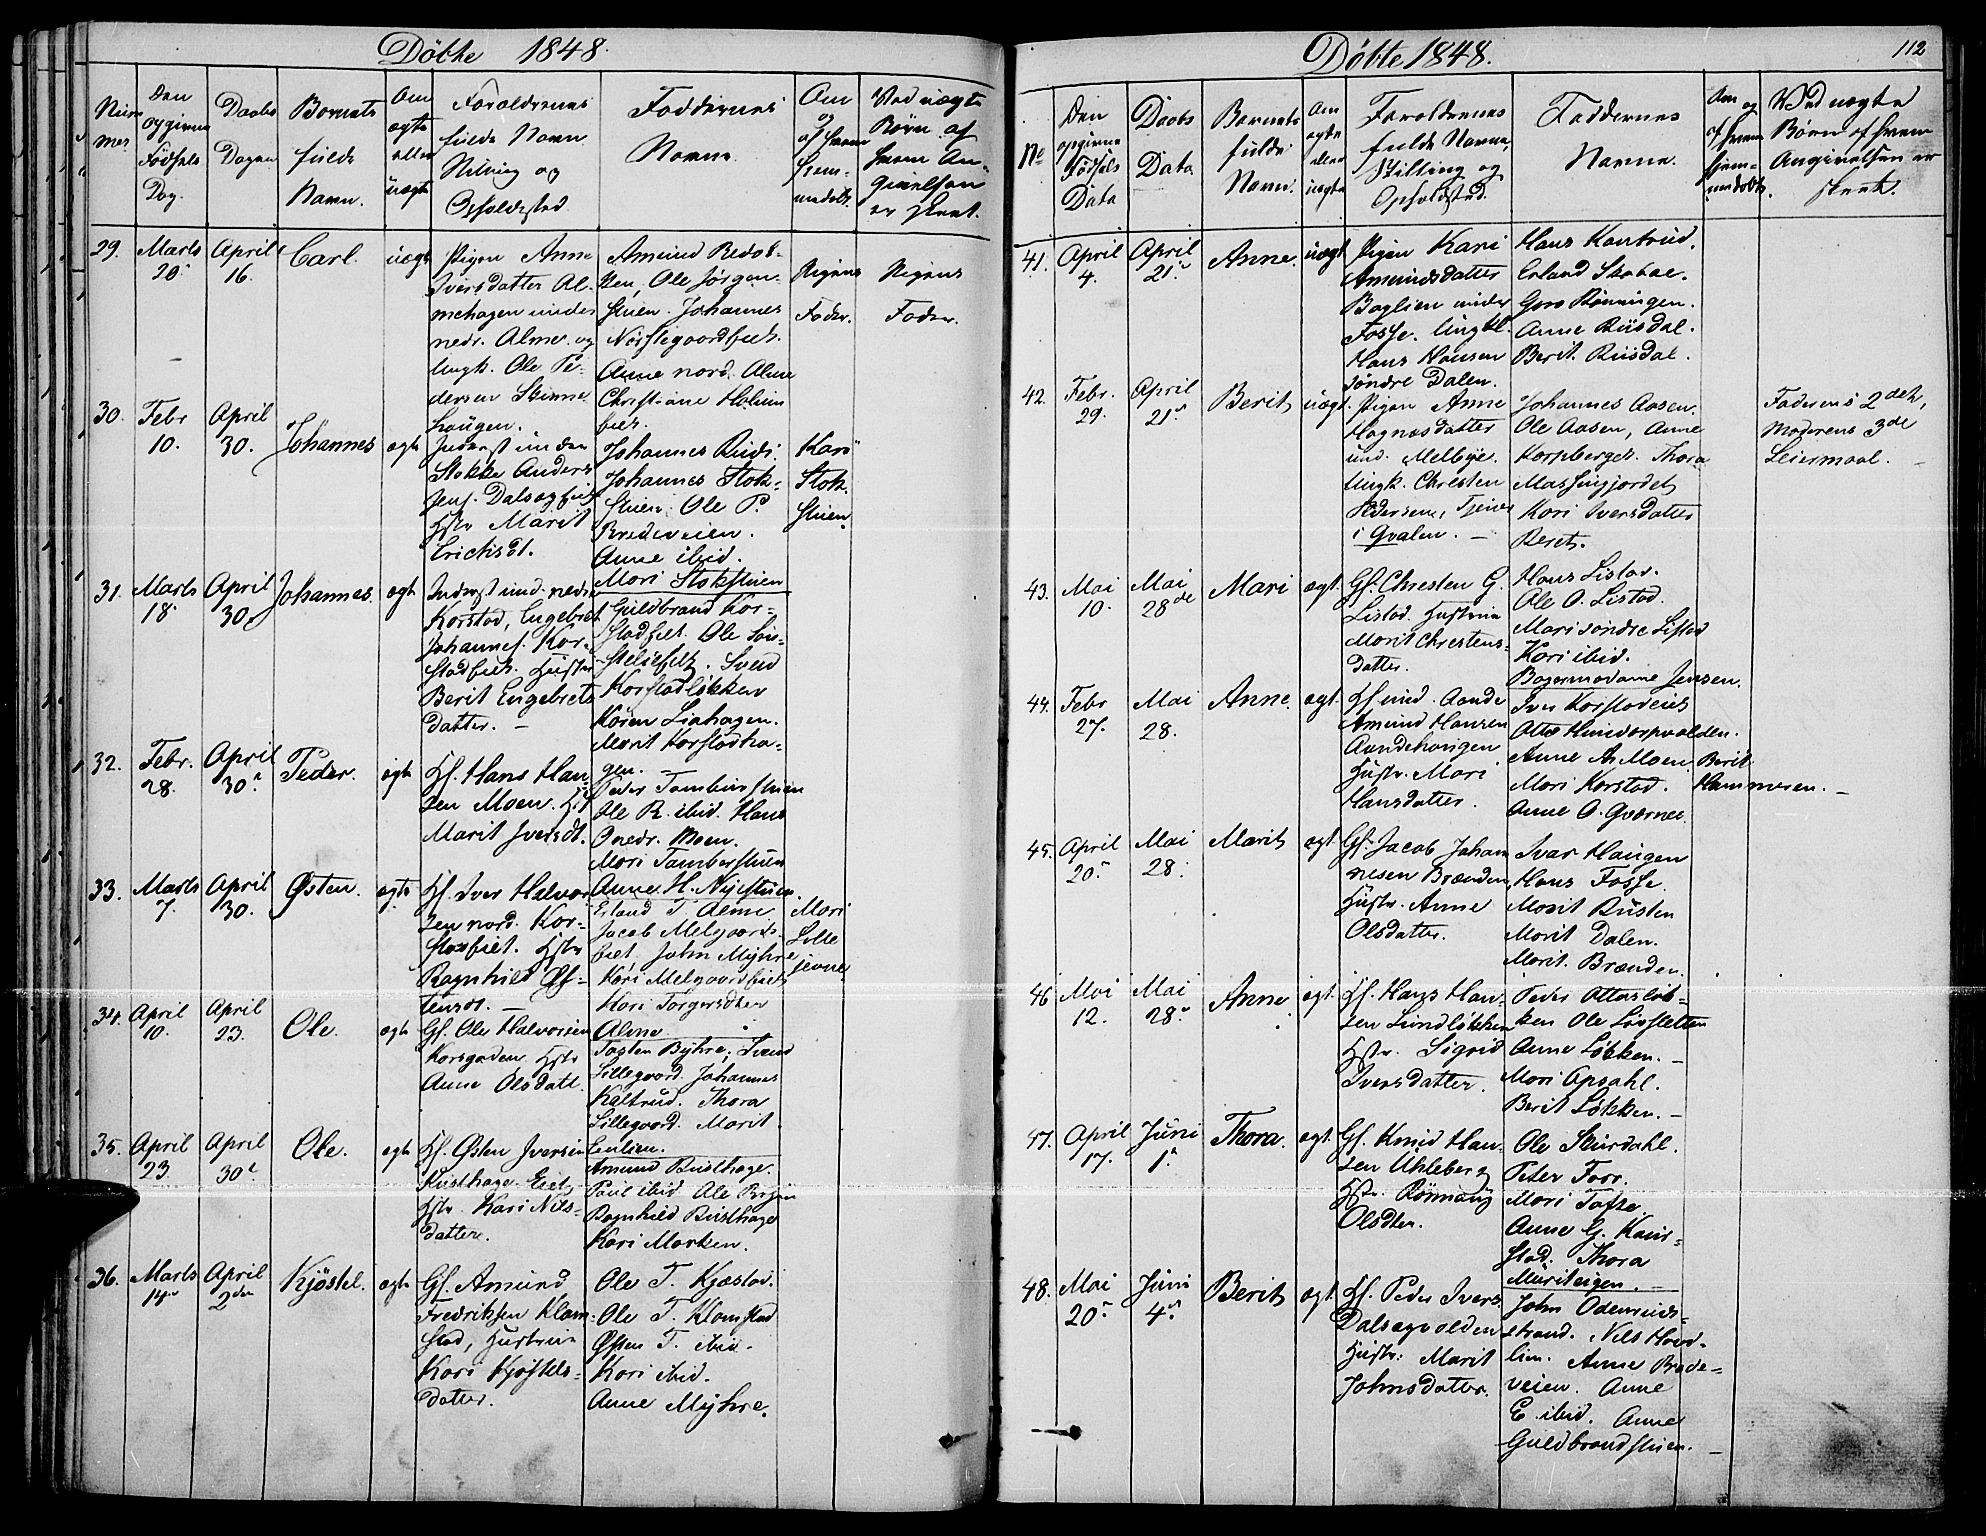 Döbte 1848.
Num
mer
Den
opgivne
Fødsels
Dag.
Daabs
Dagen
Barnets
fulde
Navn.
Om
ægte
eller
uægte
Forældrenes
fulde Navn
Stilling og
Opholdssted
Faddernes
Navne.
Om
og
af hvem
hjem-
medøbt.
Ved uægte
Børn af
hvem An-
givelsen
er skeet.
29. Marts 20. April 16. Carl. uægt
Pigen Anne
Iversdatter Al-
mehagen under
nedr. Alme og
Ungk. Ole Pe-
dersen Skinne
haugen.
Ole Jørgen-
stuen. Johannes
Anne nord. Alme
Christiane Holum
fiet.
Pigens
Fader.
Pigens
Fader.
30. Febr 10. April 30. Johannes ægt
Inderst under
Stokke Anders
Jens. Dalsegfiet
Hstr Marit
Erichsdt.
Johannes Ruds.
Johannes Stok-
stuen. Ole P.
Bredeveien.
Anne ibid.
Mari Stokstuen
Kari
Stok-
stuen
31. Marts 18. April 30. Johannes. ægt
Inderst und. nedre
Korstad, Engebret
Johannes. Kor-
stadfiet. Hustr
Berit Engebrets
datter. —
Guldbrand Kor-
stadfiet. Ole
Svend
Korstadløkken
Karen Liahagen.
Marit Korstadha-
gen. —
32. Febr. 28. April 30. Peder. ægt
Gf. Hans Han-
sen Moen. Hst
Marit Iversdt.
Peder Tamburstuen
Ole R. ibid. Hans
O nedr. Moen.
Mari Tamberstuen
Anne H. Nystuen
33. Marts 7. April 30. Østen. ægte
Hf. Iver Halvor
sen nord. Kor-
stadfiet. Hstr
Ragnhild Øs-
tensdt. —
Erland T. Alme
Jacob Melgaards-
fiet, John Myhre
Kari Melgaardfiet
Kari Torgersdter
Alme.
Mari
Lille
jevne
34. April 10. April 23. Ole. ægt
Gf. Ole Halvorsen
Korsgaden. Hstr
Anne Olsdatt.
Torsten Byhre, Svend
Lillegaard. Johannes
Kaltrud. Thora
Lillegaard. Marit
Enlien.
35. April 23. April 30. Ole. ægt
Hf. Østen Iversen
Rusthage Eiet,
Hstr. Kari Nils-
datter.
Amund Rusthage.
Paul ibid Ole
Ragnhild Rusthage
Kari Morken.
36. Marts 14. April 2den Kjöstel. ægt
Gf. Amund
Fredriksen Klom-
stad, Hustrue
Kari Kjøstels-
datter.
Ole T. Kjæstad.
Ole T. Klomstad
Østen T. ibid.
Kari ibid.
Anne Myhre.
Döbte 1848.
112
No
Den
opgivne
Fødsels
Data
Daabs
Data
Barnets
fulde
Navn.
Om
ægte
eller
uægte
Forældrenes
fulde Navne
Stilling og
Opholdssted.
Faddernes
Navne.
Om og
af hvem
hjem-
medøbt.
Ved uægte
Børn af hvem
Angivelsen er
skeet.
41. April 4. April 21. Anne. uægt
Pigen Kari
Amundsdatter
Baglien under
Fosse. Ungkl.
Hans Hansen
søndre Dalen.
Hans Kantrud.
Erland Skabae.
Guro Rønningen.
Anne Rusdal.
Berit Rusdal.
42. Febr. 29. April 21. Berit uægt.
Pigen Anne
Hagnæsdatter
und. Melbye.
Ungk. Chresten
Pedersen, Tjener
i Qvalen. —
Johannes Aasen.
Ole Aasen, Anne
Korpberget. Thora
Massingjordet
Kari Iversdatter
Beret.
Faderens 2det,
Moderens 3de
Leiermaal. —
43. Mai 10. Mai 28de Mari ægt.
Gf. Chresten G.
Listad. Hustrue
Marit Chrestens-
datter.
Hans Listad.
Ole O. Listad.
Mari søndre Listad
Kari ibid.
Bagermadame Jensen.
44. Febr 27. Mai 28. Anne. ægt.
Hf. und. Aande
Amund Hansen
Aandehaugen
Hustr. Mari
Hansdatter.
Iver Korstadeiet
Otto Hundorpvolden.
Anne A. Moen. Berit
Mari Korstad. Hammeren. —
Anne O. Qværnei.
45. April 20. Mai 28. Marit ægt.
Gf. Jacob Johan
nesen Brænden,
Hustr. Anne
Olsdatter.
Ivar Haugen
Hans Fosse.
Marit Rusten
Marit Dalen.
Marit. Brænden.
46 Mai 12. Mai 28. Anne ægt.
Hf. Hans Han-
sen Lundløkken
Hstr. Sigrid
Iversdatter.
Peder Ottersløk-
ken Ole Løvsletten
Anne Løkken. —
Mari Opsahl.
Berit Løkken. —
47. April 17. Juni 1. Thora. ægt.
Gf. Knud Han-
sen Uhleberg
Hstr. Rønnaug
Olsdter.
Ole Skurdahl.
Peter Forr.
Mari Tofte
Anne G. Kaur-
stad. Thora
Muriteigen. —
48. Mai 20. Juni 4. Berit ægt.
Hf. Peder Ivers.
Dalsegvolden
Hustr: Marit
Johnsdatter.
John Odenruds-
strand. Nils Hov-
lien. Anne Brede-
veien. Anne
E. ibid. Anne
Guldbrandstuen. —